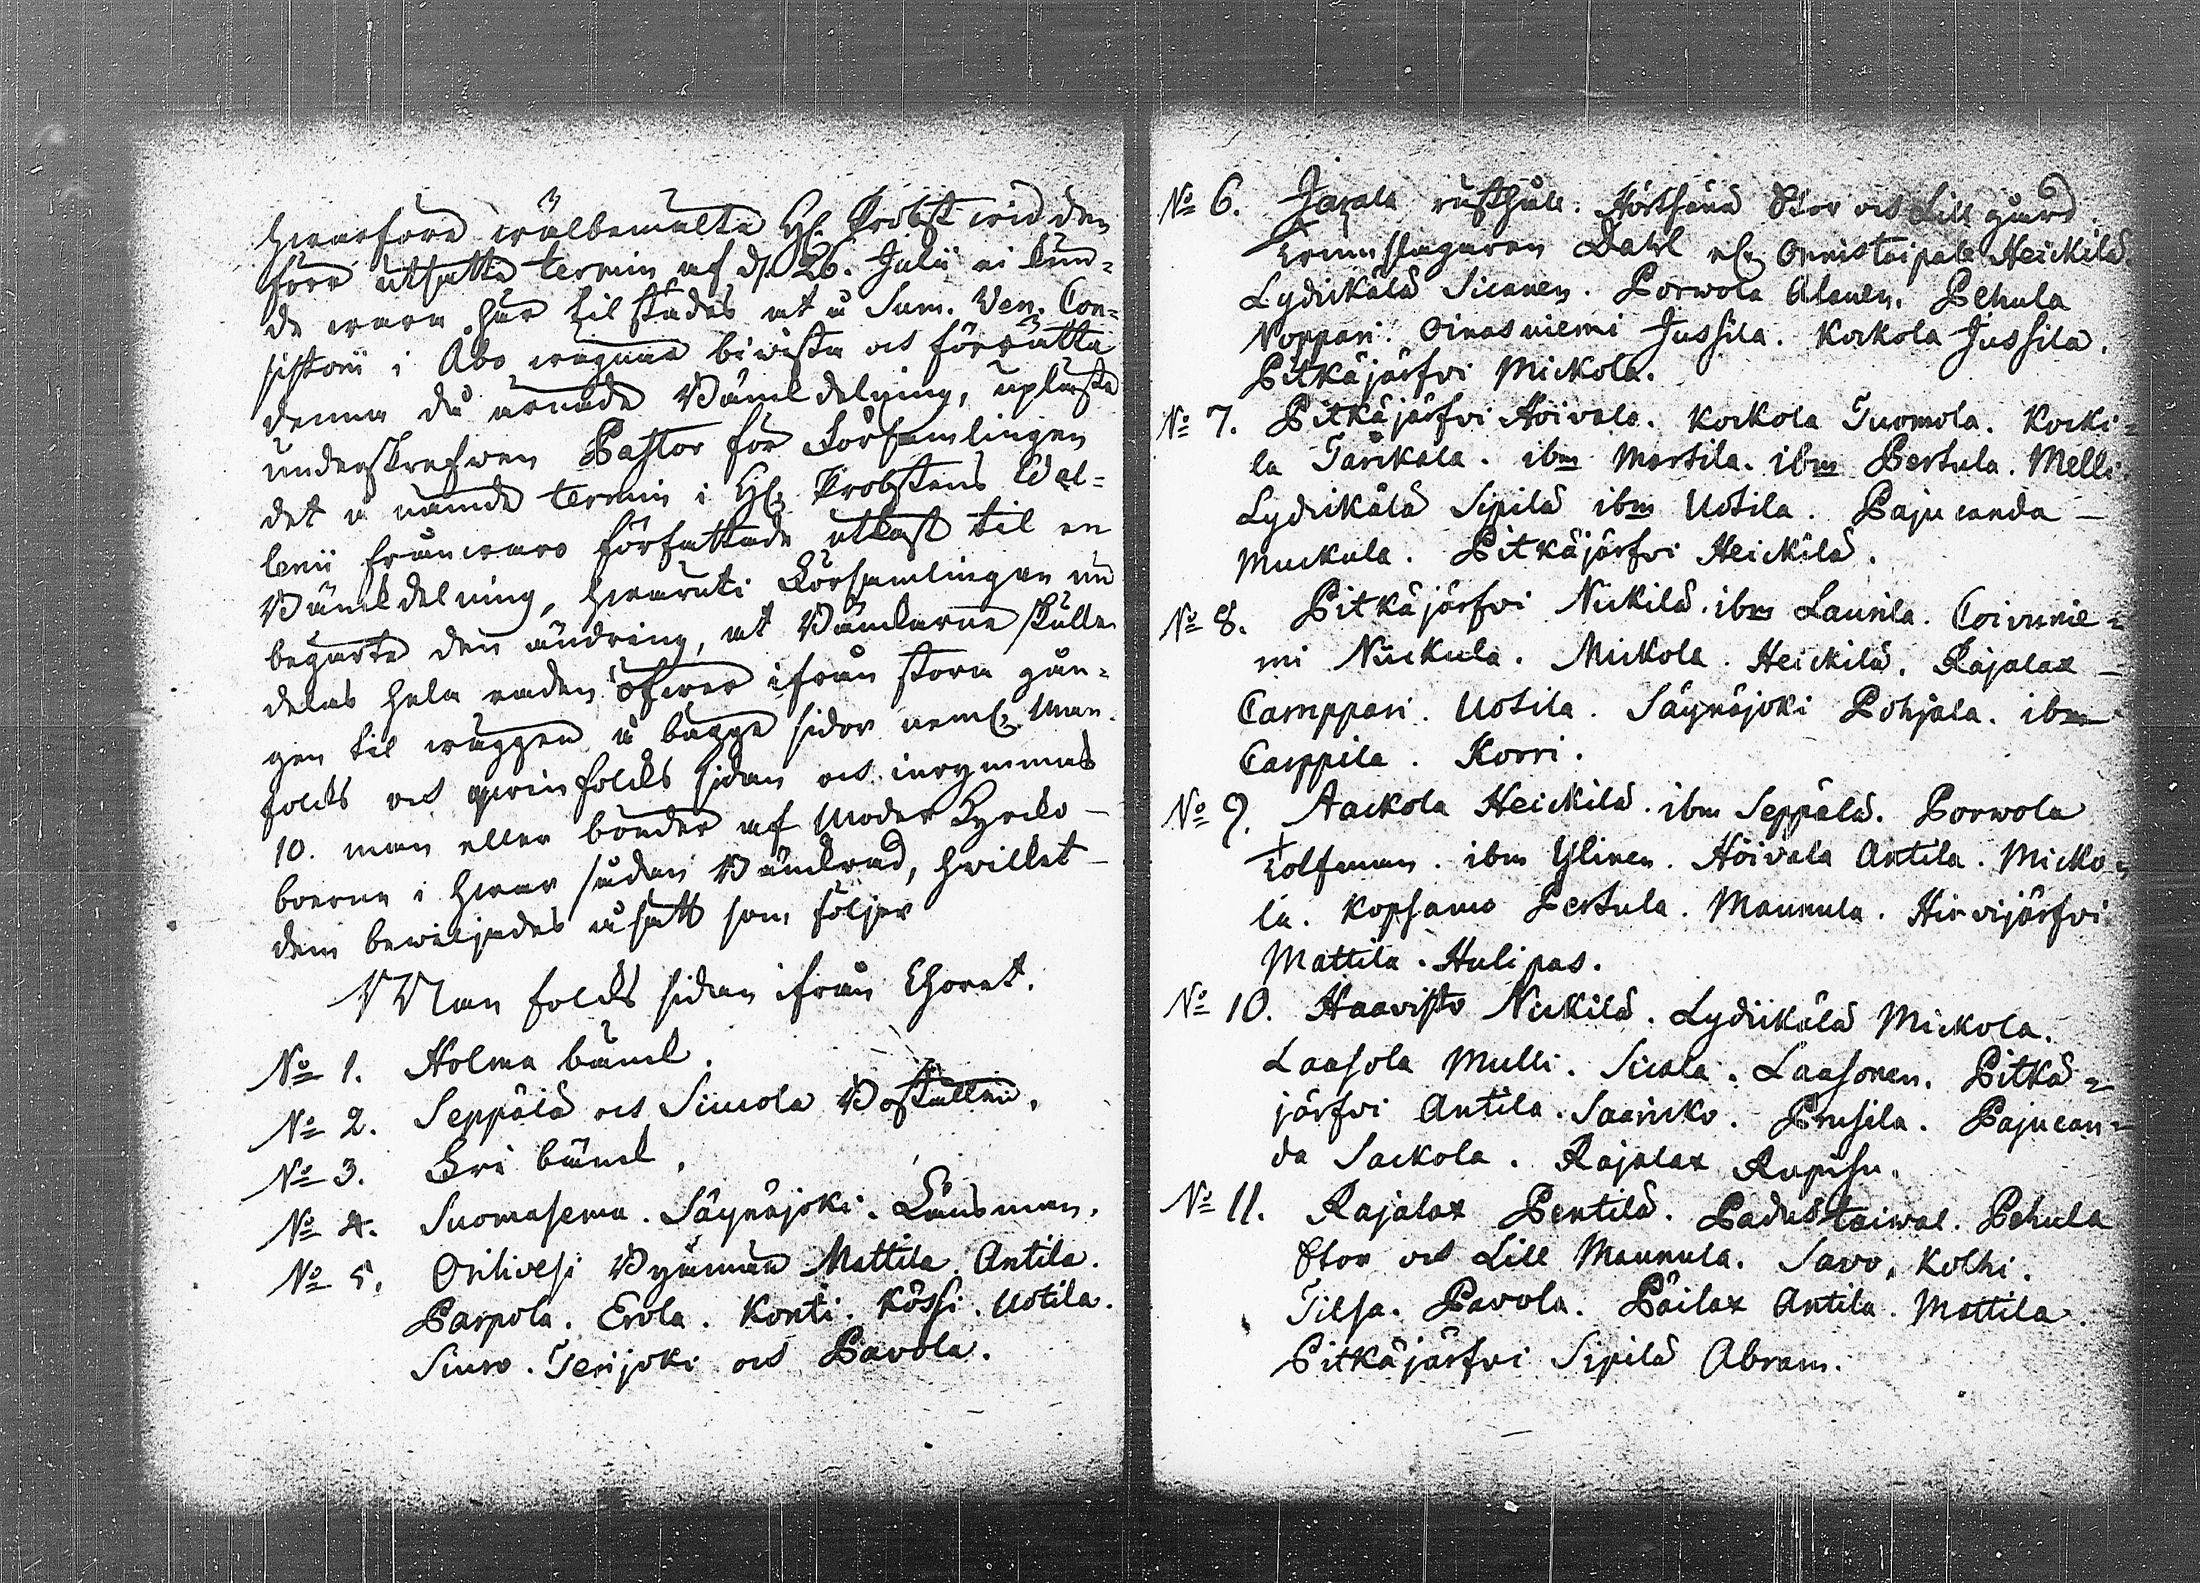 hwarföre wälbemälte H. Probst wid den
före utsatte termin af d. 26. Julii ei kun=
de wara här tilstädes at å Sum. Ven. Con=
sistorii i Åbo wägnar biwista och författa
denna då ärnade Bänkdelning, uplästes
underskrefwen Pastor för Församlingen
det å nämde termin i H. Probstens
ifrånwaro författade utkast til en
Bänkdelning, hwaruti Församlingen nu
begärte den ändring, at Bänkarne skulle
delas hela raden öfwer ifrån stora gån=
gen til wäggen å bägge sidor neml. Man
folcks och qwinfolcks sidan och inrymmas
10. man eller bönder af Moder Kyrcko-
boerne i hwar sådan Bänkrad, hwilket-
dem bewiljades å sätt som följer
Man folcks sidan ifrån Choret.
No 1. Holma bänck.
No 2. Seppälä och Simola Boställen.
No 3. Fri bänck.
No 4. Suomasema. Säynäjoki. Länsman.
No 5. Orihvesi Bymän Mattila. Antila.
Parpola. Erola. Konti. Kössi. Uotila.
Siuro. Terijoki och Pavola.
No 6. Jaxala rusthåll. Hörtsänä Stor och Lill gård.
Trumslagaren Dahl Onnistaipale Heickilä.
Lydickälä Sicanen. Porwola Alanen. Pehula
Noppari. Oinasniemi Jussila. Kockola Jussila.
Pitkäjärfvi Mickola.
No 7. Pitkäjärfvi Hoivala. Kockola Tuomola. Kocki=
la Tarckala. ibm Martila. ibm Pertula. Melli
Lydickälä Sipilä ibm Uotila. Pajucanda-
Muckula. Pitkäjärfvi Heickilä.
No 8. Pitkäjärfvi Nickilä. ibm Laurila. Coivunie=
mi Nuckula. Mickola. Heickilä. Rajalax-
Camppari. Uotila. Säynäjoki Pohjala. ibm
Carppila. Korri.
No 9. Aackola Heickilä. ibm Seppälä. Porwola
Tolfman. ibm Ylinen. Hoivala Antila. Micko=
la. Kopsamo Pertula. Maunula. Hirvijärfvi
Mattila. Hulipas.
No 10. Haavisto Nickilä. Lydickälä Mickola.
Laasola Mulli. Sicala. Laasonen. Pitkä=
järfvi Antila. Saaricko. Prusila. Pajucan=
da Sackola. Rajalax Rupisu.
No 11. Rajalax Pentilä. Padustaiwal. Pehula
Stor och Lill Maunula. Savo, Kolhi.
Tilsa. Pavola. Päilax Antila. Mattila.
Pitkäjärfvi Sipilä Abram.